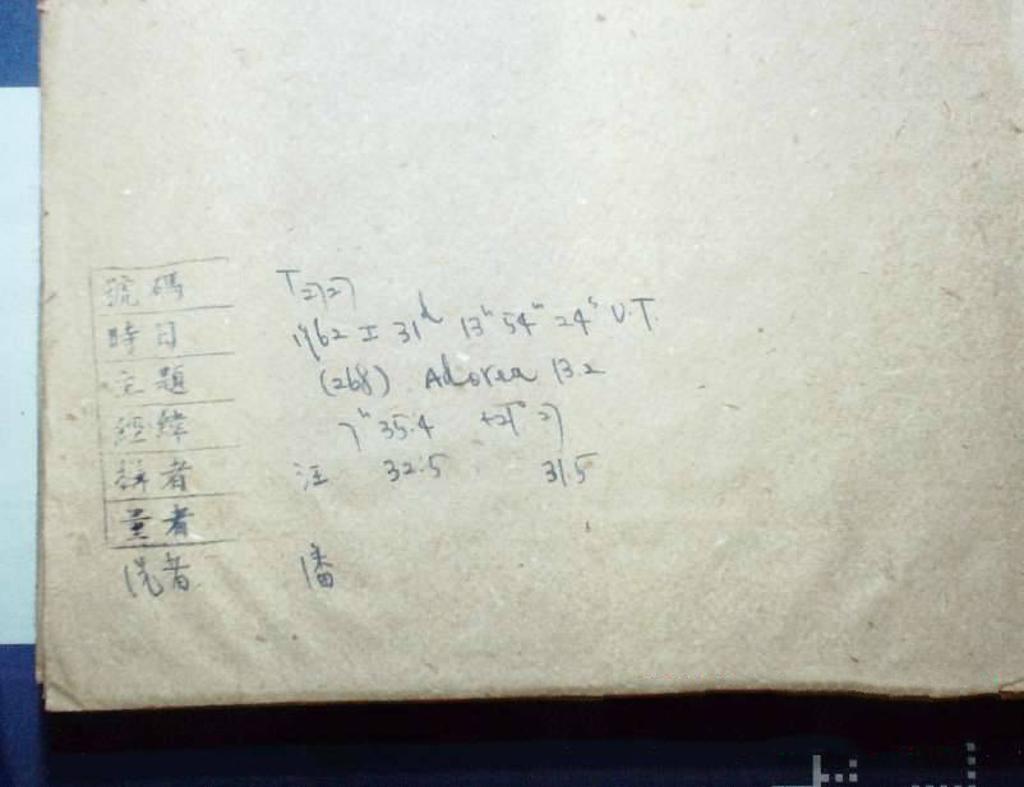 號碼 T2727
時日 1962 I 31d 13h 54m 24s U.T.
主題 (268) Adorea 13.2
經緯 7h 35.4 +21° 27
攝者 汪 32.5 31.5
量者
洗者 潘